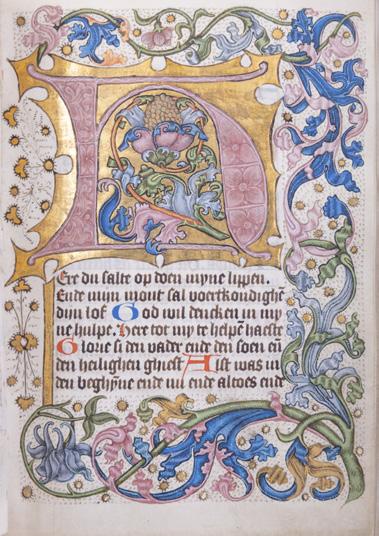 H
Ere du salte op doen myne lippen.
Ende mijn mont sal voertkondighē
dijn lof God wil dencken in my
ne hulpe. here tot my te helpē haeste
Glorie si den vader ende den soen eñ
den heilighen ghiest Alst was in
den beghīne ende nu ende altoes ende